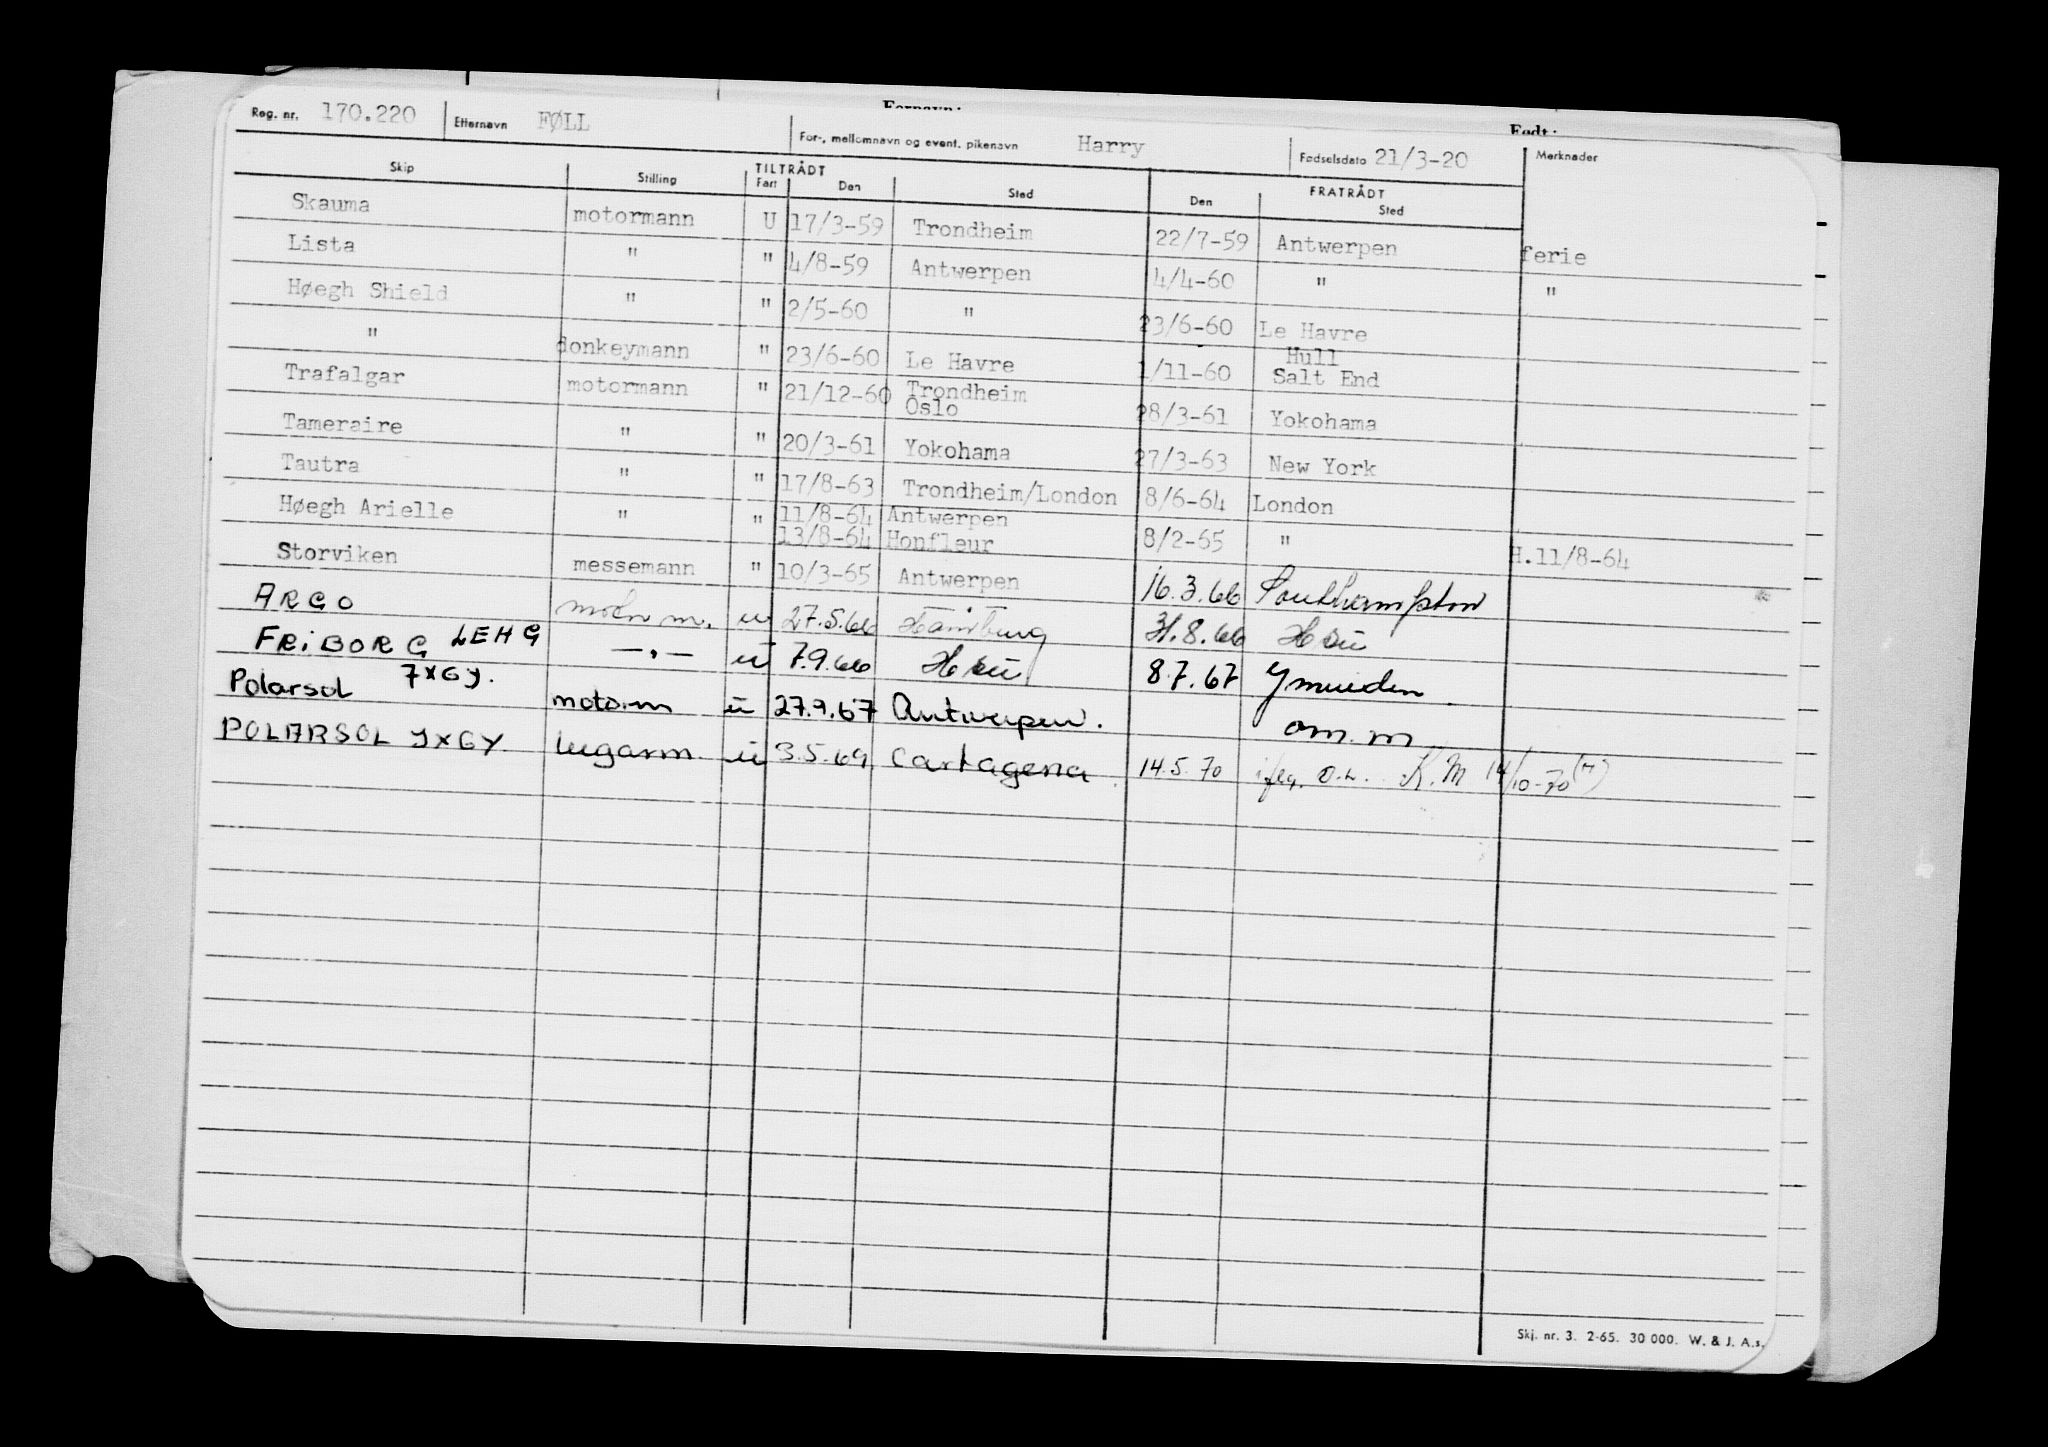 Fornavn:
Født:
Reg. nr. 170.220 Etternavn FØLL For-, mellomnavn og event. pikenavn Harry Fødselsdato 21/3-20 Merknader
Skip Stilling TILTRÅDT FRATRÅDT
Fart Den Sted Den Sted
Skauma motormann U 17/3-59 Trondheim 22/7-59 Antwerpen ferie
Lista " " 4/8-59 Antwerpen 4/4-60 " "
Høegh Shield " " 2/5-60 " 23/6-60 Le Havre
" donkeymann " 23/6-60 Le Havre 1/11-60 Hull
Salt End
Trafalgar motormann " 21/12-60 Trondheim
Oslo 28/3-61 Yokohama
Tameraire " " 20/3-61 Yokohama 27/3-63 New York
Tautra " " 17/8-63 Trondheim/London 8/6-64 London
Høegh Arielle " " 11/8-64 Antwerpen
13/8-64 Honfleur 8/2-65 " H.11/8-64
Storviken messemann " 10/3-65 Antwerpen 16.3.66 Southampton
ARGO m. u 27.5.66 Hamburg 31.8.66
FRIBORG LEHG —"— u 7.9.66 8.7.67 Ymuiden
Polarsol 7XGY. motorm u 27.9.67 Antwerpen. om. m
POLARSOL JXGY. lugarm. u 3.5.69 Cartagena 14.5.70 iflg. K.M 14/10-70 (M)
Skj. nr. 3. 2-65. 30 000. W. & J. A.s.